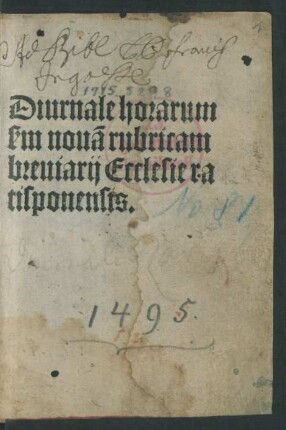 Ad Bibl
Ingolst
1995 5298
Diurnale horarum
scdm nouā rubricam
breuiarij Ecclesie ra
tisponensis.
No 81
1495.